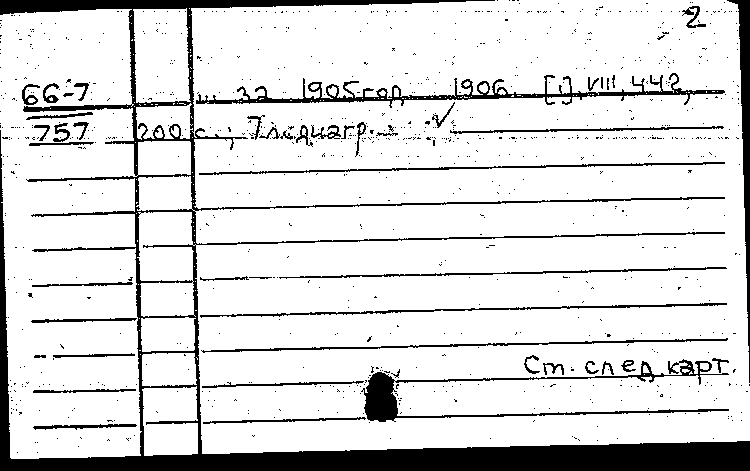 2
66-7 ... за 1905 год 1906. [1], VIII, 442,
757 200 с.; 7 л. диагр.
См. след. карт.